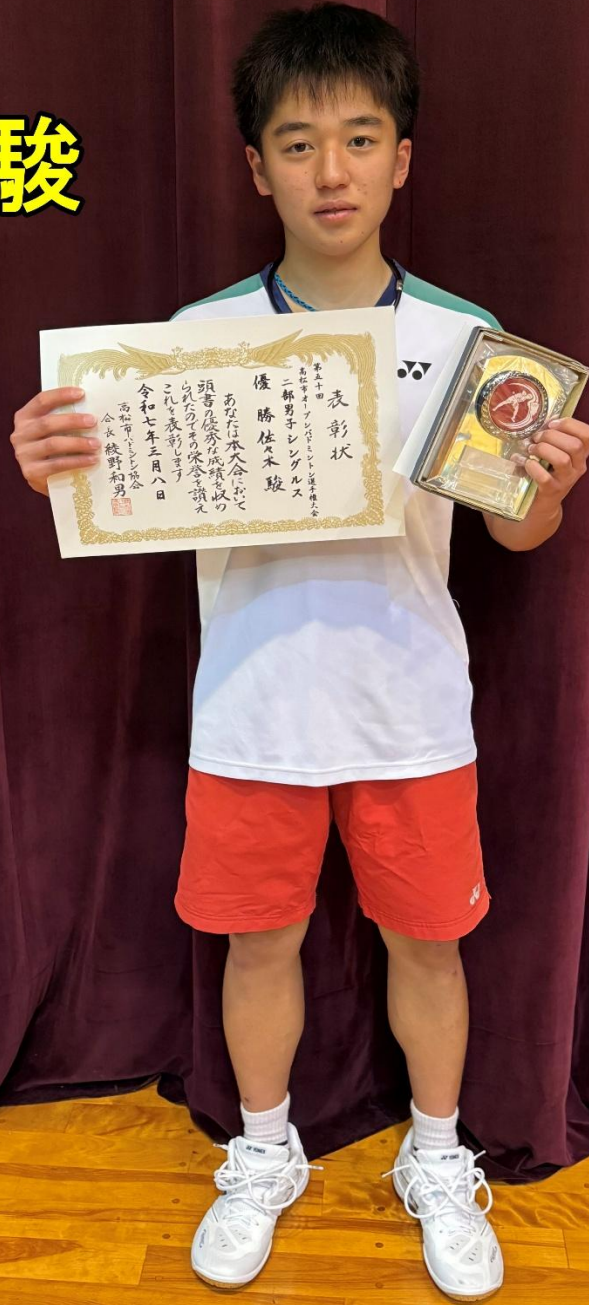 駿
表彰状
第五十回
高松市オープンバドミントン選手権大会
二部男子シングルス
優勝 佐々木 駿
あなたは本大会において
頭書の優秀な成績を収め
られたのでその栄誉を讃え
これを表彰します
令和七年三月八日
高松市バドミントン協会
会長 綾野和男
YONEX
YONEX